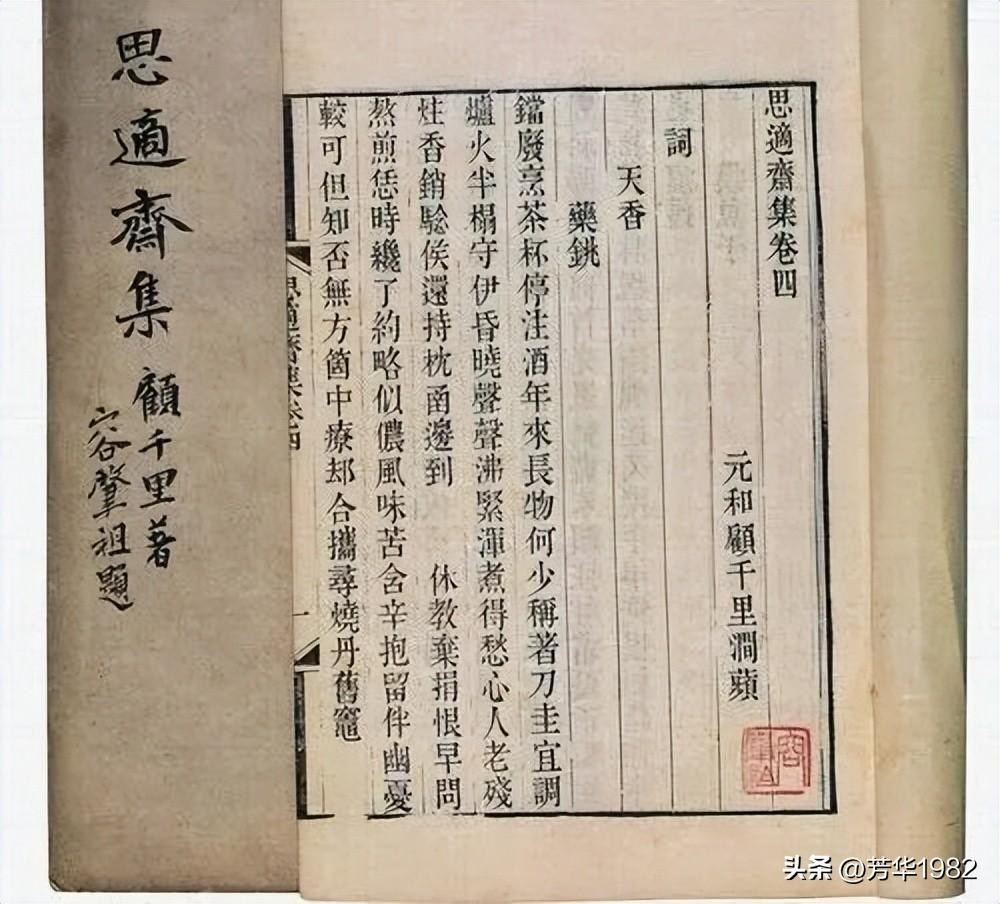 思適齋集卷四
元和顧千里澗蘋
詞
天香
藥銚
鐺廢烹茶杯停注酒年來長物何少稱著刀圭宜調
爐火半榻守伊昏曉聲聲沸緊渾煮得愁心人老殘
炷香銷驗候還持枕函邊到　休教棄捐恨早問
熬煎恁時纔了約略似儂風味苦含辛抱留伴幽憂
較可但知否無方箇中療却合攜尋燒丹舊竈
思適齋集卷四
一
思適齋集 顧千里著
容肇祖題
头条 @芳华1982